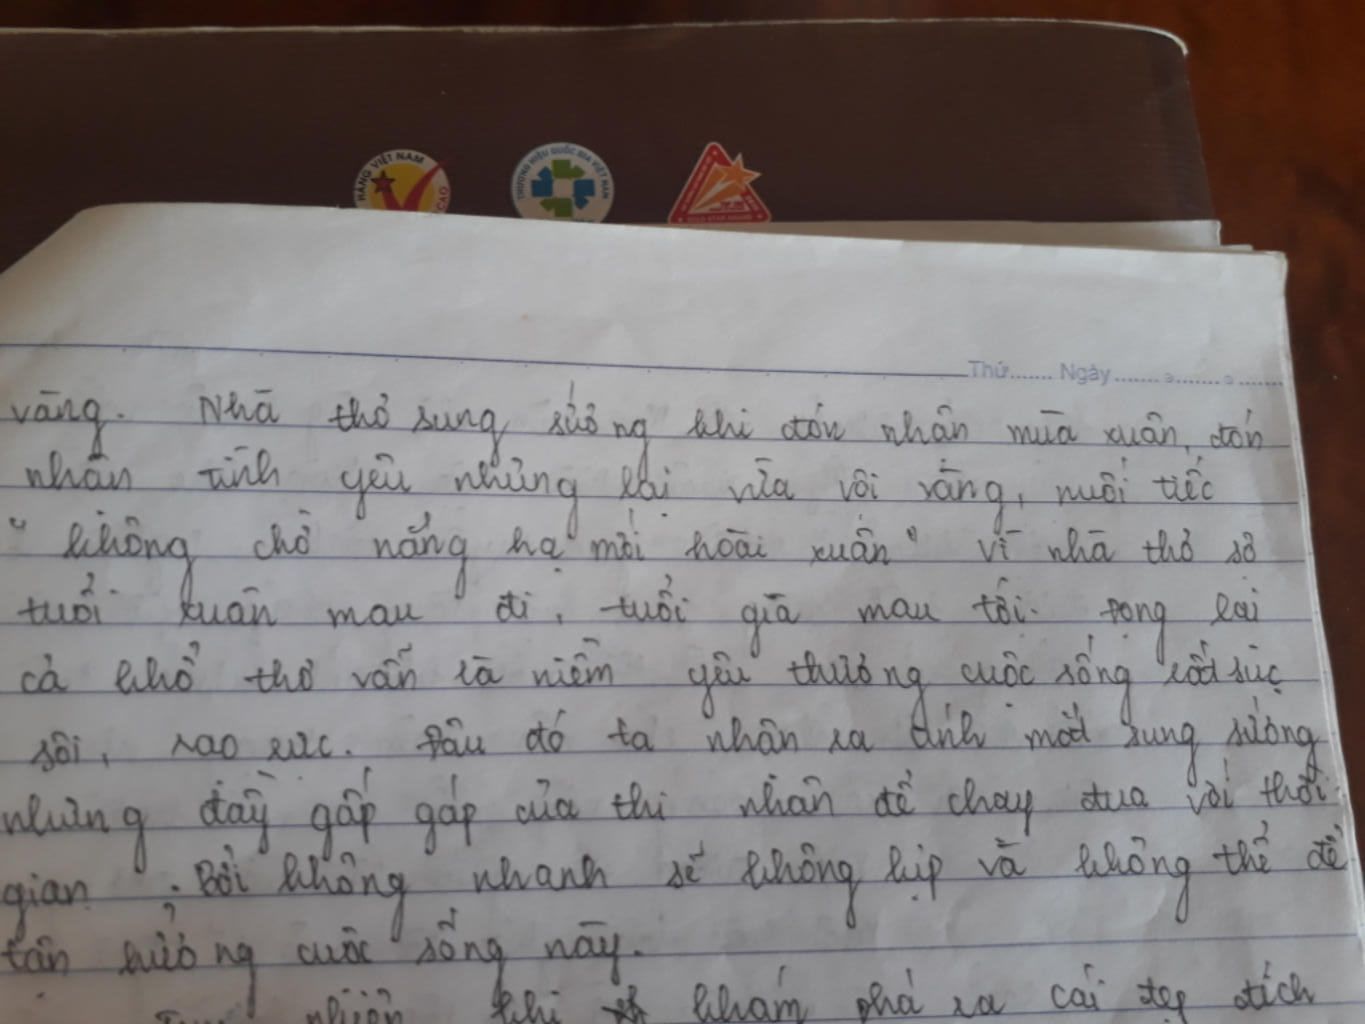 HÀNG VIỆT NAM
CAO
THƯƠNG HIỆU QUỐC GIA VIỆT NAM
Thứ....... Ngày ....... ....... .......
vàng. Nhà thơ sung sướng khi đón nhận mùa xuân, đón
nhận tình yêu nhưng lại vừa vội vàng, nuối tiếc
"không chờ nắng hạ mới hoài xuân" vì nhà thơ sợ
tuổi xuân mau đi, tuổi già mau tới. Đọng lại
cả khổ thơ vẫn là niềm yêu thương cuộc sống rất sục
sôi, rạo rực. Đâu đó ta nhận ra ánh mắt sung sướng
nhưng đầy gấp gáp của thi nhân để chạy đua với thời
gian. Bởi không nhanh sẽ không kịp và không thể để
tận hưởng cuộc sống này.
khi khám phá ra cái đẹp đích